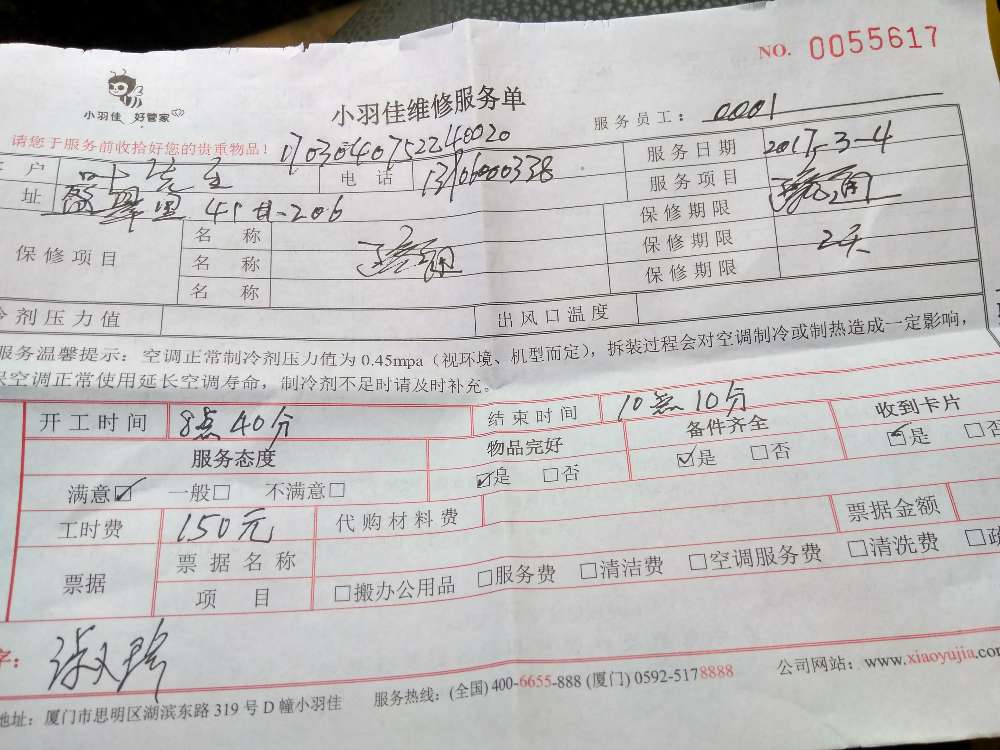 NO. 0055617
小羽佳 好管家
小羽佳维修服务单
服务员工： 0001
请您于服务前收拾好您的贵重物品！ 1703040752240020
户 电话 13906000338 服务日期 2017-3-4
址 41 206 服务项目
保修项目 名称 保修期限
名称 保修期限 2天
名称 保修期限
剂压力值 出风口温度
服务温馨提示：空调正常制冷剂压力值为0.45mpa（视环境、机型而定），拆装过程会对空调制冷或制热造成一定影响，
空调正常使用延长空调寿命，制冷剂不足时请及时补充。
开工时间 8点40分 结束时间 10点10分
服务态度 物品完好 备件齐全 收到卡片
满意☑ 一般□ 不满意□ ☑是 □否 ☑是 □否 ☑是 □否
工时费 150元 代购材料费 票据金额
票据 票据名称
项目 □搬办公用品 □服务费 □清洁费 □空调服务费 □清洗费 □疏
字：
地址：厦门市思明区湖滨东路319号D幢小羽佳 服务热线：(全国) 400-6655-888 (厦门) 0592-5178888 公司网站：www.xiaoyujia.com